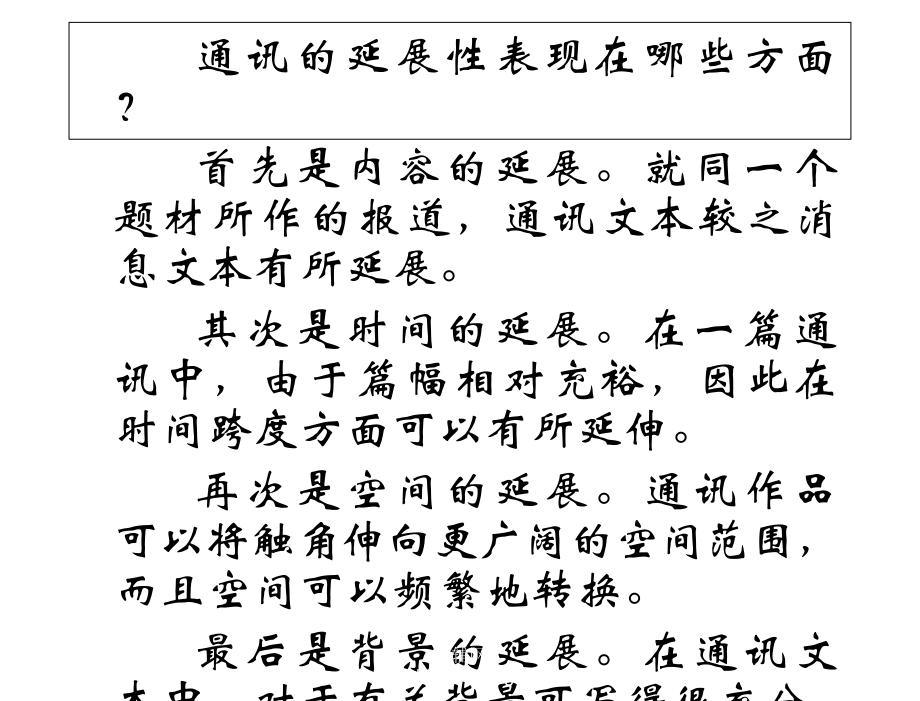 通讯的延展性表现在哪些方面
？
首先是内容的延展。就同一个
题材所作的报道，通讯文本较之消
息文本有所延展。
其次是时间的延展。在一篇通
讯中，由于篇幅相对充裕，因此在
时间跨度方面可以有所延伸。
再次是空间的延展。通讯作品
可以将触角伸向更广阔的空间范围，
而且空间可以频繁地转换。
最后是背景的延展。在通讯文
本中，对于有关背景可写得很充分，